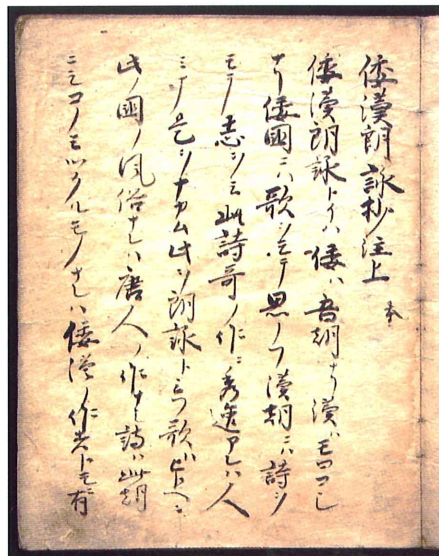 倭漢朗詠抄注上 本
倭漢朗詠トイハ倭ハ吾朝ナリ漢ハモロコシ
ナリ倭國ニハ歌ヲモテ思ノフ漢朝ニハ詩ヲ
モテ志ヲシ此詩哥ノ作ニ秀逸アレハ人
ミナ是ヲナカム此ヲ朗詠トイフ歌ハ
此ノ國ノ風俗ナレハ唐人ノ作ナシ詩ハ此朝
ニモコノミツクルモノナレハ倭漢ノ作共トモ有